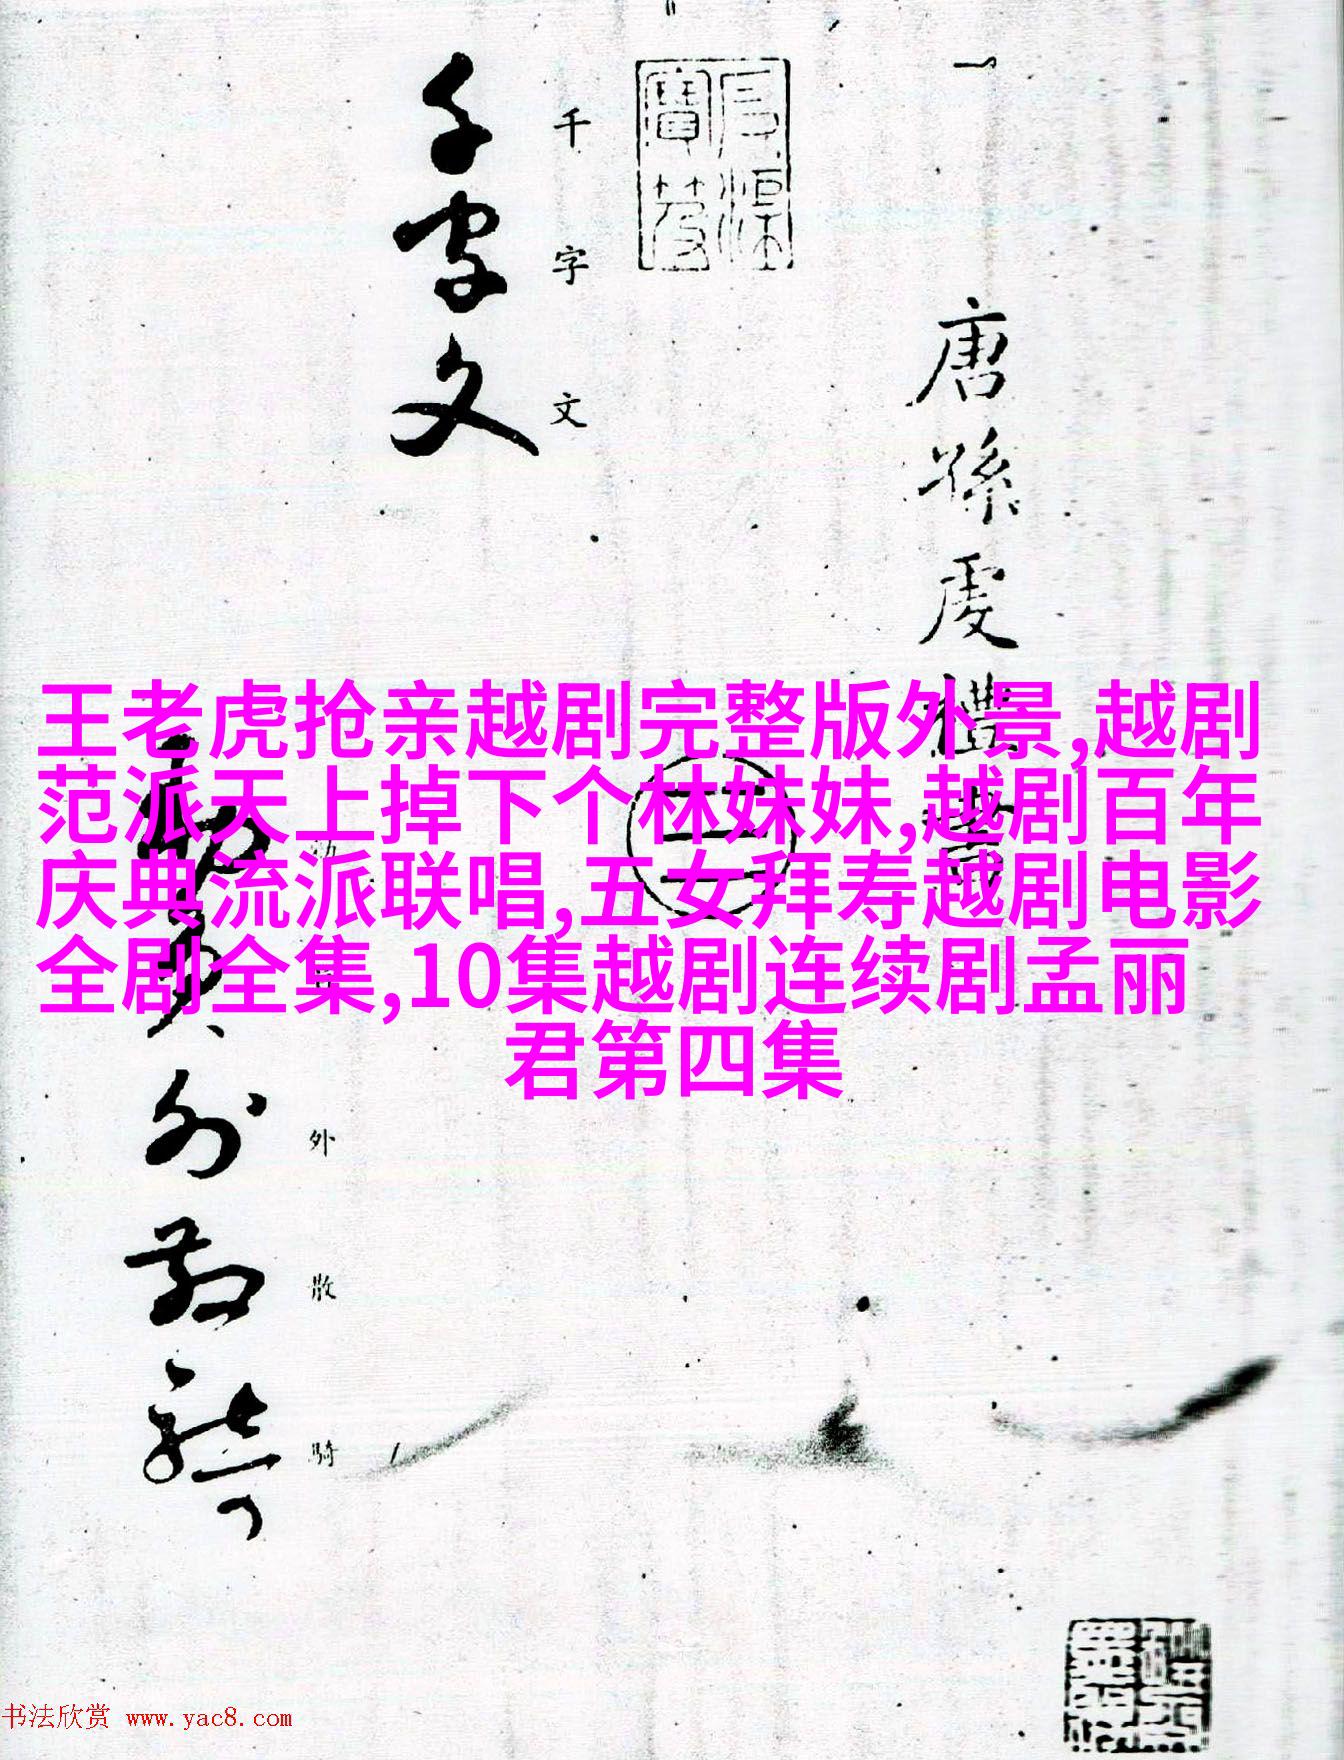 唐孫虔禮書
千字文
千字文
王老虎抢亲越剧完整版外景,越剧
范派天上掉下个林妹妹,越剧百年
庆典流派联唱,五女拜寿越剧电影
全剧全集,10集越剧连续剧孟丽
君第四集
外散騎
外散騎
书法欣赏 www.yac8.com